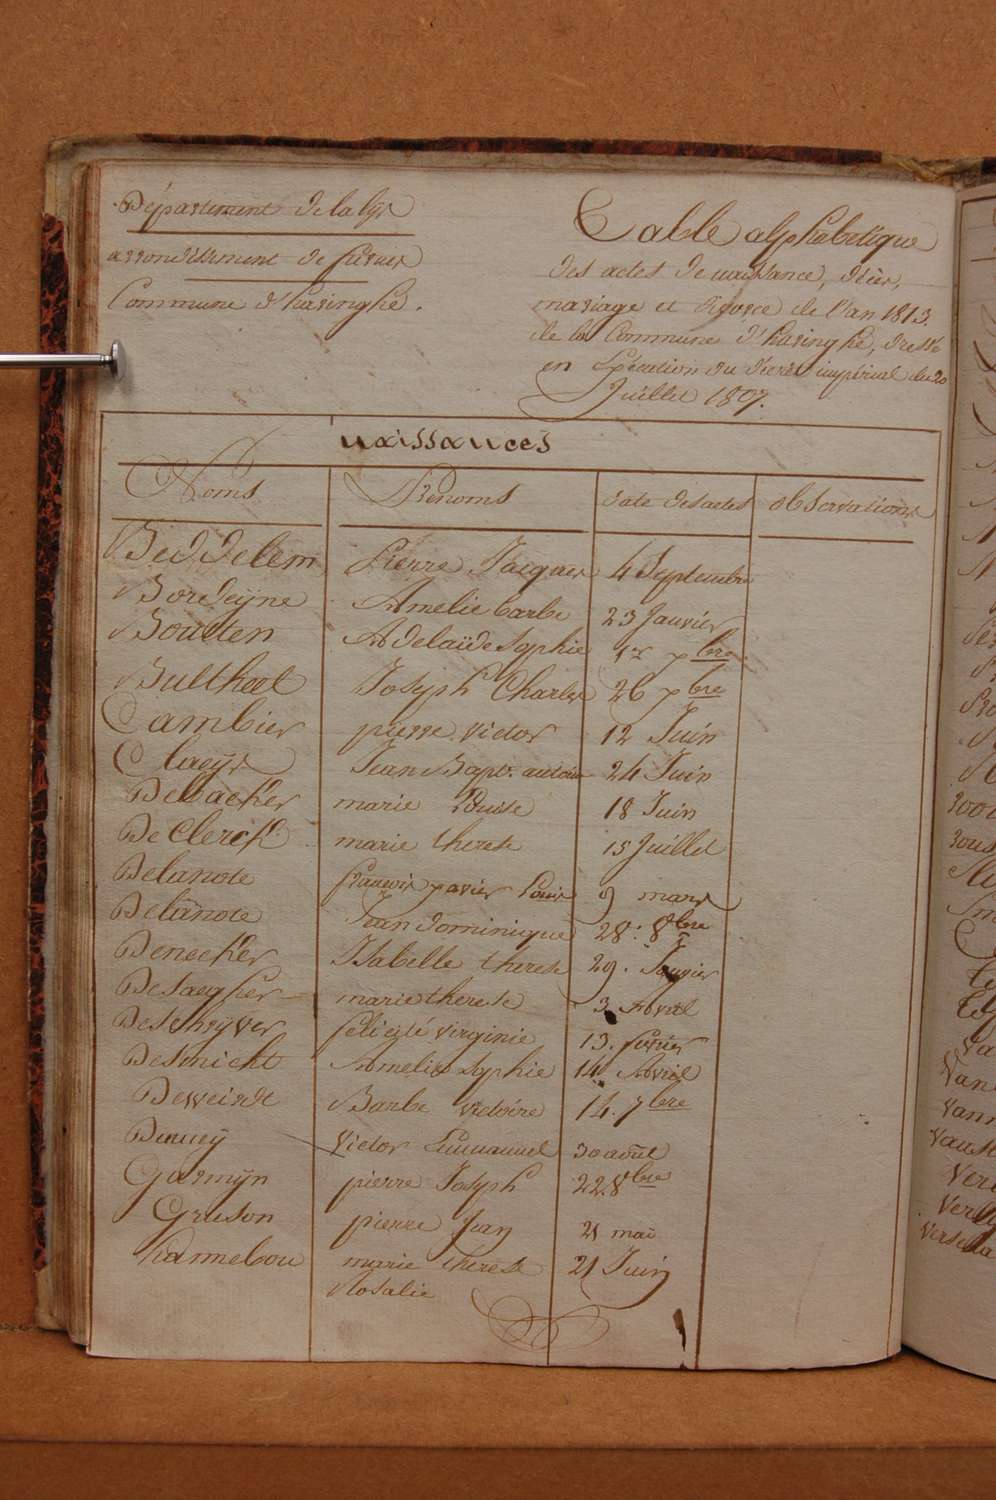 Département de la lys
arrondissement de furnes
Commune d'haringhe.
Table alphabetique
des actes de naissance, décès,
mariage et divorce de l'an 1813.
de la Commune d'haringhe, dressé
en Exécution du décret impérial du 20
Juillet 1807.
naissances
Noms Prénoms date des actes observations
Beddelem Pierre Jacques 4 Septembre
Bordeijne Amelie barbe 23 Janvier
Boutten Adelaïde Sophie 12 xbre
Bultheel Joseph Charles 26 xbre
Cambier pierre victor 12 Juin
Claeijs Jean Bapt. antoine 24 Juin
Debacker marie Louise 18 Juin
De Clerck marie therese 15 Juillet
Delanote francois xavier Louis 9 mars
Delanote Jean dominique 28: 8bre
Denecker Isabelle therese 29. Janvier
Desaegher marie therese 3 Avril
Deschrijver felicité virginie 13. fevrier
Desmicht Amelie Sophie 14 Avril
Deweirdt Barbe victoire 14. 7bre
victor Emmanuel 30 août
Garmijn pierre Joseph 22 8bre
Gruson pierre Jean 21 mai
hannebou marie therese 21 Juin
Rosalie